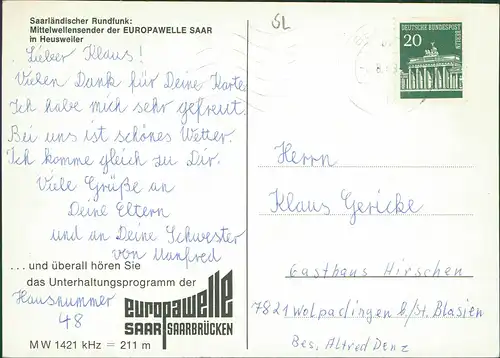 Saarländischer Rundfunk:
Mittelwellensender der EUROPAWELLE SAAR
in Heusweiler
SL
DEUTSCHE BUNDESPOST
BERLIN
20
Lieber Klaus!
Vielen Dank für Deine Karte.
Ich habe mich sehr gefreut.
Bei uns ist schönes Wetter.
Ich komme gleich zu Dir.
Viele Grüße an
Deine Eltern
und an Deine Schwester
von Manfred
... und überall hören Sie
das Unterhaltungsprogramm der
Hausnummer
48
europawelle
SAAR SAARBRÜCKEN
MW 1421 kHz = 211 m
Herrn
Klaus Gericke
Gasthaus Hirschen
7821 Wolpadingen b/St. Blasien
Bes. Alfred Denz